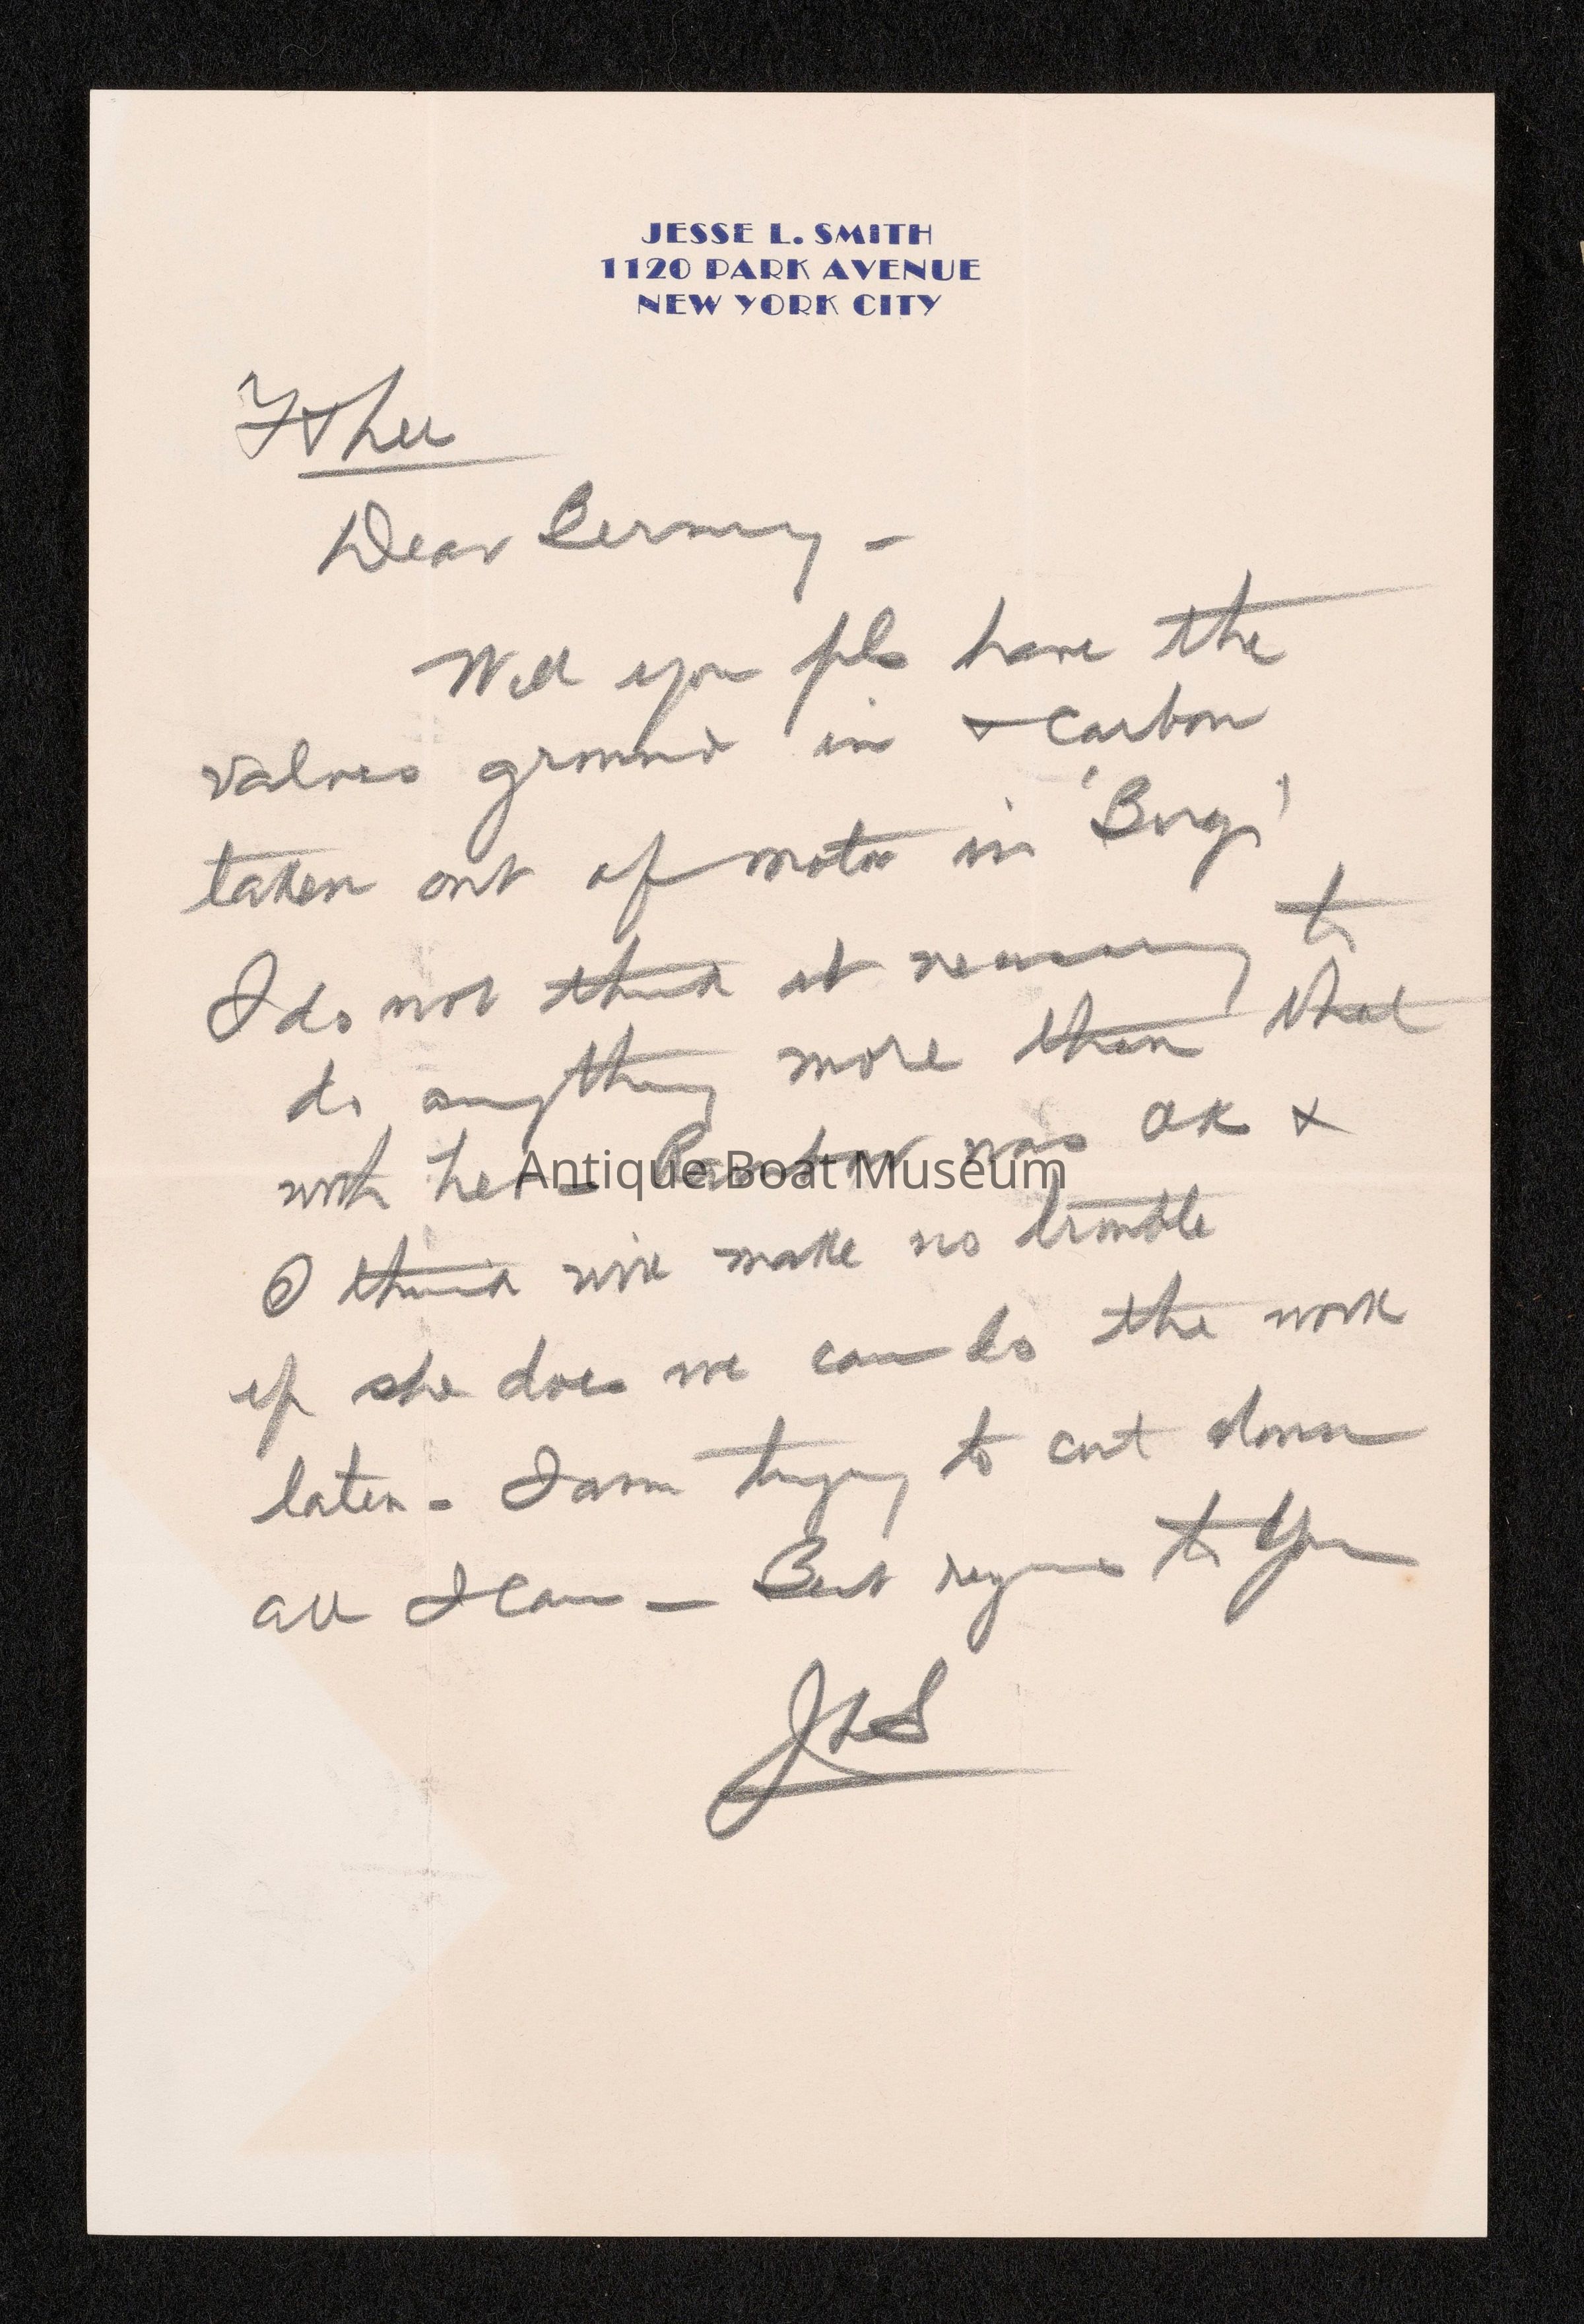 JESSE L. SMITH
1120 PARK AVENUE
NEW YORK CITY
Dear
Will you pls have the
valves ground in & carbon
taken out of motor in
I do not think it necessary to
do anything more than that
with her - was OK &
I think will make no trouble
if she does we can do the work
later - I am trying to cut down
all I can — Best regards to you
JLS
Antique Boat Museum